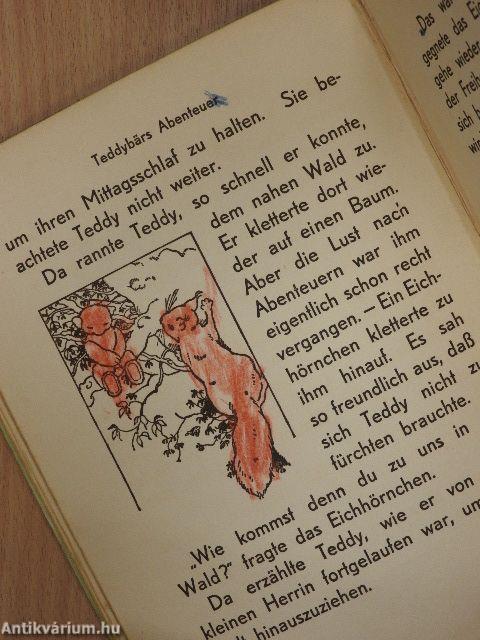 Teddybärs Abenteuer
um ihren Mittagsschlaf zu halten. Sie be-
achtete Teddy nicht weiter.
Da rannte Teddy, so schnell er konnte,
dem nahen Wald zu.
Er kletterte dort wie-
der auf einen Baum.
Aber die Lust nach
Abenteuern war ihm
eigentlich schon recht
vergangen. — Ein Eich-
hörnchen kletterte zu
ihm hinauf. Es sah
so freundlich aus, daß
sich Teddy nicht zu
fürchten brauchte.
„Wie kommst denn du zu uns in
Wald?" fragte das Eichhörnchen.
Da erzählte Teddy, wie er von
kleinen Herrin fortgelaufen war, um
hinauszuziehen.
Das war
gegnete das Ei
gehe wieder
der Freih
sich
Antikvárium.hu